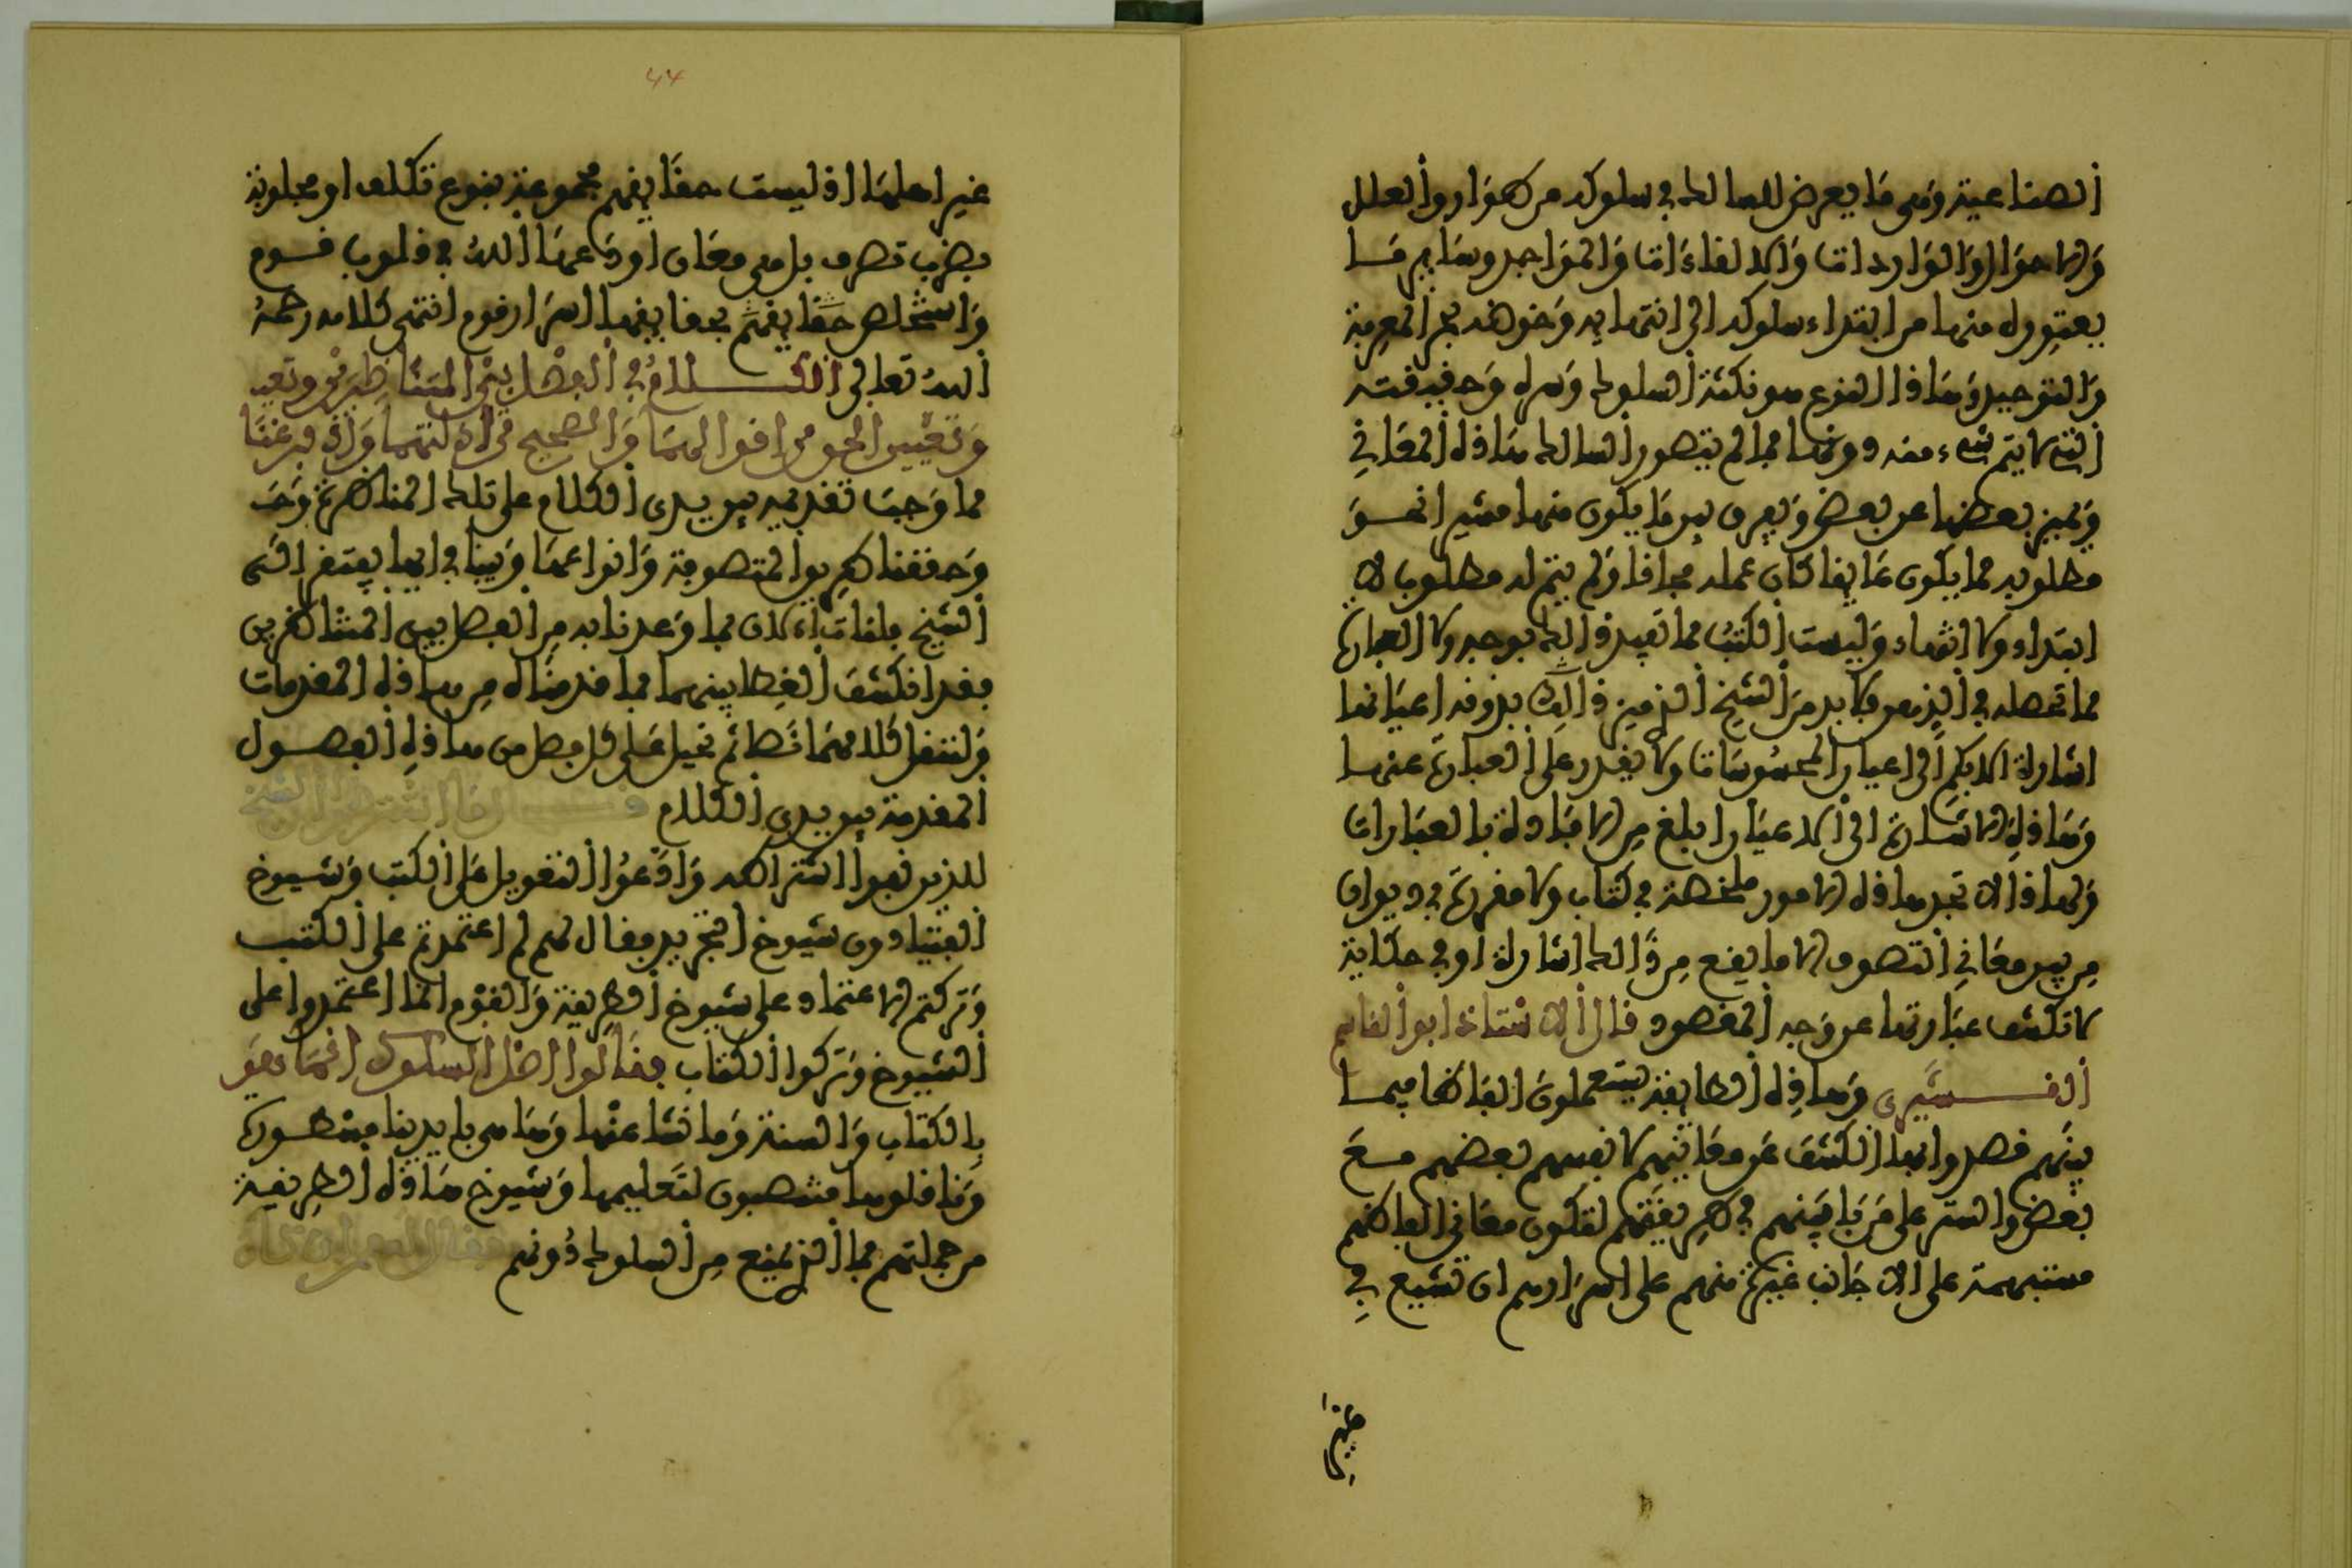 الصناعية وهي ما يعرض للسالك في سلوكه من طوار والعلل
والاحوال والواردات والالقاءات والمواجد وسائر ما
يعتوره منها من ابتداء سلوكه الى انتهايه وخوضه بحر المعرفة
والتوحيد وهاذا النوع هو نكتة السلوك وسره وحقيقته
التي لا يتم شيء منه دونها فما لم يتصور السالك هاذه المعاني
ويميز بعضها عن بعض ويعرف ما يكون منها مشيرا نحو
مطلوبه مما يكون عايقا كان عمله مجازا ولم يتم له مطلوب لا
ابتداء ولا انتهاء وليست الكتب مما تفيد ذالك بوجه ولا العبارة
مما تحصله في الذهن ولا بد من الشيخ الذي يميز ذالك بذوقه اعيانها
اشارة الابكم الى اعيان المحسوسات ولا يقدر على العبارة عنها
وهاذه الاشارة الى الاعيان ابلغ من الافادة بالعبارات
ولهاذا لا تجد هاذه الامور ملخصة في كتاب ولا مقررة في ديوان
من معاني التصوف الا ما يقع من ذالك اشارة او في حكاية
لا تكشف عبارتها عن وجه المقصود قال الاستاذ ابو القاسم
القشيري وهاذه الطايفة يستعملون الفاظا فيما
بينهم قصدوا بها الكشف عن معانيهم لانفسهم بعضهم مع
بعض والستر على من باينهم في طريقتهم لتكون معاني الفاظهم
مستبهمة على الاجانب غيرة منهم على اسرارهم ان تشيع في
غير
٤٤
غير اهلها اذ ليست حقايقهم مجموعة بنوع تكلف او مجلوبة
بضرب تصرف بل هي معان اودعها الله في قلوب قوم
واستخلص حقايقهم بحقايقها اسرار قوم انتهى كلامه رحمه
الله تعالى الكلام في الفصل بين المتناظرين
وتعيين الحق من اقوالهما والصحيح من ادلتهما واذ فرغنا
مما وجب تقديمه بين يدي الكلام على تلك المناظرة
وحققنا طريق المتصوفة وانواعها وبينا في ايها يفتقر الى
الشيخ فلنات الان بما وعدنا به من الفصل بين المتناظرين
فقد انكشف الغطا بينهما بما قدمناه من هاذه المقدمات
ولننقل كلامهما نصا ثم نحيل على كل فصل من هاذه الفصول
المقدمة بين يدي الكلام قال الشيخ
للذين نفوا اشتراطه وادعوا التعويل على الكتب وشيوخ
الفتيا دون شيوخ التجريد فقال لهم لم اعتمدتم على الكتب
وتركتم الاعتماد على شيوخ الطريقة والقوم انما اعتمدوا على
الشيوخ وتركوا الكتاب فقالوا اصل السلوك انما هو
بالكتاب والسنة وما نشا عنها وهاهي بايدينا مسطورة
وناقلوها منتصبون لتعليمها وشيوخ هاذه الطريقة
من جملتهم فما الذي يمنع من السلوك دونهم